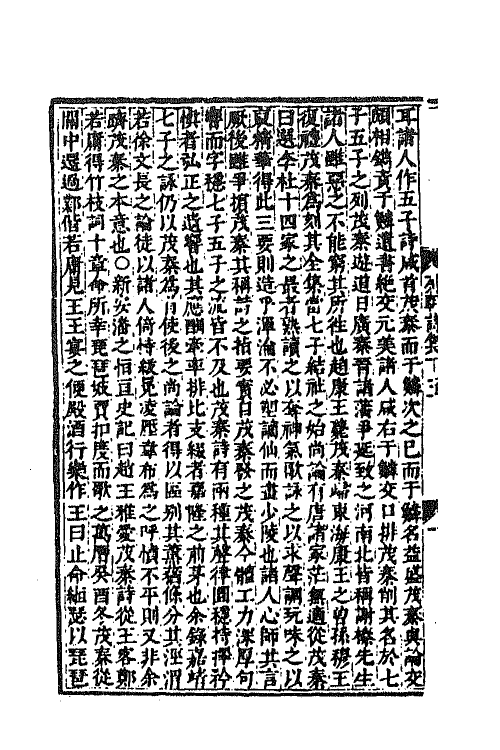 耳諸人作五子詩咸首茂秦而于鱗次之已而于鱗名益盛茂秦與論文
頗相鐫責于鱗遺書絕交元美諸人咸右于鱗交口排茂秦削其名於七
子五子之列茂秦遊道日廣秦晉諸藩爭延致之河南北皆稱謝榛先生
諸人雖惡之不能窮其所往也趙康王薨茂秦歸東海康王之曾孫穆王
復禮茂秦為刻其全集當七子結社之始尚論有唐諸家茫無適從茂秦
曰選李杜十四家之最者熟讀之以奪神氣歌詠之以求聲調玩味之以
裒精華得此三要則造乎渾淪不必塑謫仙而畫少陵也諸人心師其言
厥後雖爭擯茂秦其稱詩之指要實自茂秦發之茂秦今體工力深厚句
響而字穩七子五子之流皆不及也茂秦詩有兩種其聲律圓穩持擇矜
慎者弘正之遺響也其應酬牽率排比支綴者嘉隆之前茅也余錄嘉靖
七子之詠仍以茂秦為首使後之尚論者得以區別其薰蕕條分其涇渭
若徐文長之論徒以諸人倚恃紱冕凌壓韋布為之呼憤不平則又非余
躋茂秦之本意也○新安潘之恒亘史記曰趙王雅愛茂秦詩從王客鄭
若庸得竹枝詞十章命所幸琵琶妓賈扣度而歌之萬曆癸酉冬茂秦從
關中還過鄴偕若庸見王王宴之便殿酒行樂作王曰止命緪瑟以琵琶